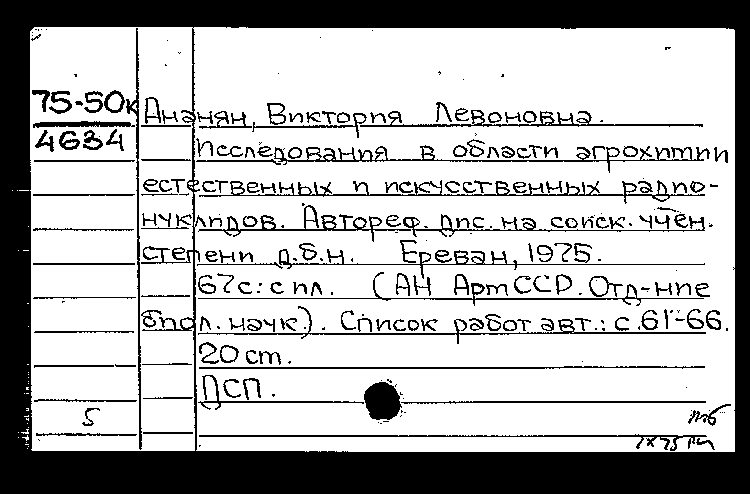 75-50к
4634
Ананян, Виктория Левоновна.
Исследования в области агрохимии
естественных и искусственных радио-
нуклидов. Автореф. дис. на соиск. учен.
степени д.б.н. Ереван, 1975.
67с: с ил. (АН АрмССР. Отд-ние
биол. наук.). Список работ авт.: с.61-66.
20 cm.
ДСП.
5